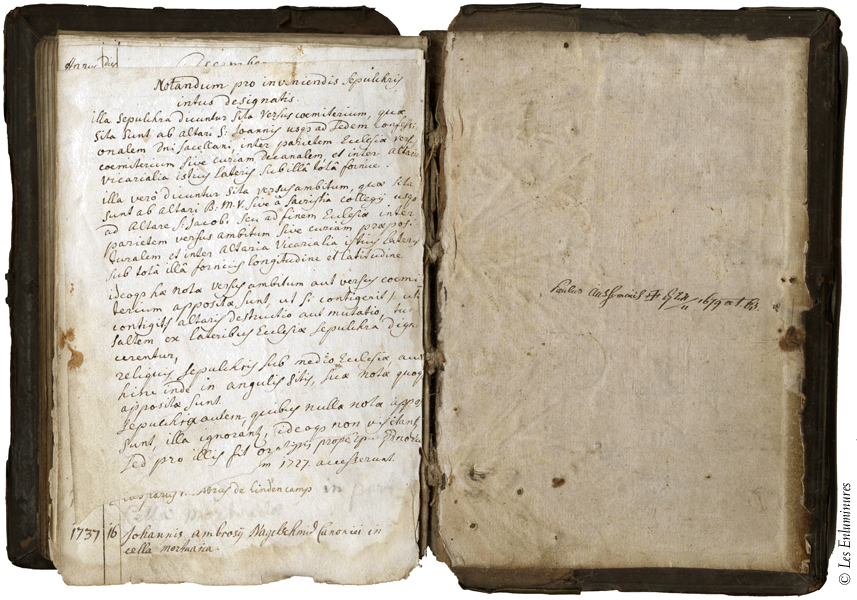 Anno Die December
Notandum pro inveniendis sepulchris
intus designatis.
illa sepulchra dicuntur sita versus coemiterium, quae
sita sunt ab altari S: Joannis usq; ad sedem confessi-
onalem dni sacellani, inter parietem Ecclesiae versus
coemiterium sive curiam decanalem, et inter altaria
vicarialia istius lateris sub illâ totâ fornice.
illa vero dicuntur sita versus ambitum, quae sita
sunt ab altari B: M. V. sive â sacristia collegij usq;
ad Altare S: Jacobi seu ad finem Ecclesiae inter
parietem versus ambitum sive curiam praeposi-
turalem et inter Altaria Vicarialia istius lateris
sub totâ illâ fornicis longitudine et latitudine.
ideoq; hae notae versus ambitum aut versus coemi-
terium appositae sunt, ut si contigerit, uti
contigit altaris destructio aut mutatio,
saltem ex lateribus Ecclesiae sepulchra digno-
scerentur,
reliquis sepulchris sub medio Ecclesiae aut
hinc inde in angulis sitis, suae notae quoq;
appositae sunt.
sepulchra autem, quibus nulla nota appo-
sunt, illa ignorant, ideoq; non visitant
sed pro illis fit
1727 accesserunt
de Lindencamp in
1737 16 Johannis Ambrosij Nagelschmid Canonici in
cella mortuaria.
Paulus 1659
© Les Enluminures